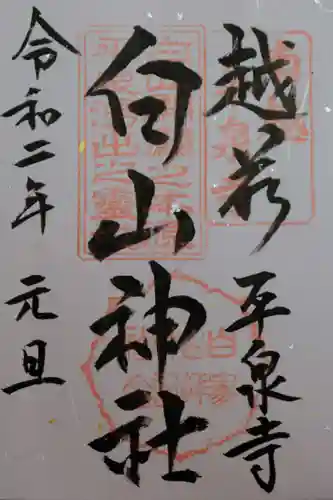 越前
平泉寺
白山神社
令和二年
元旦